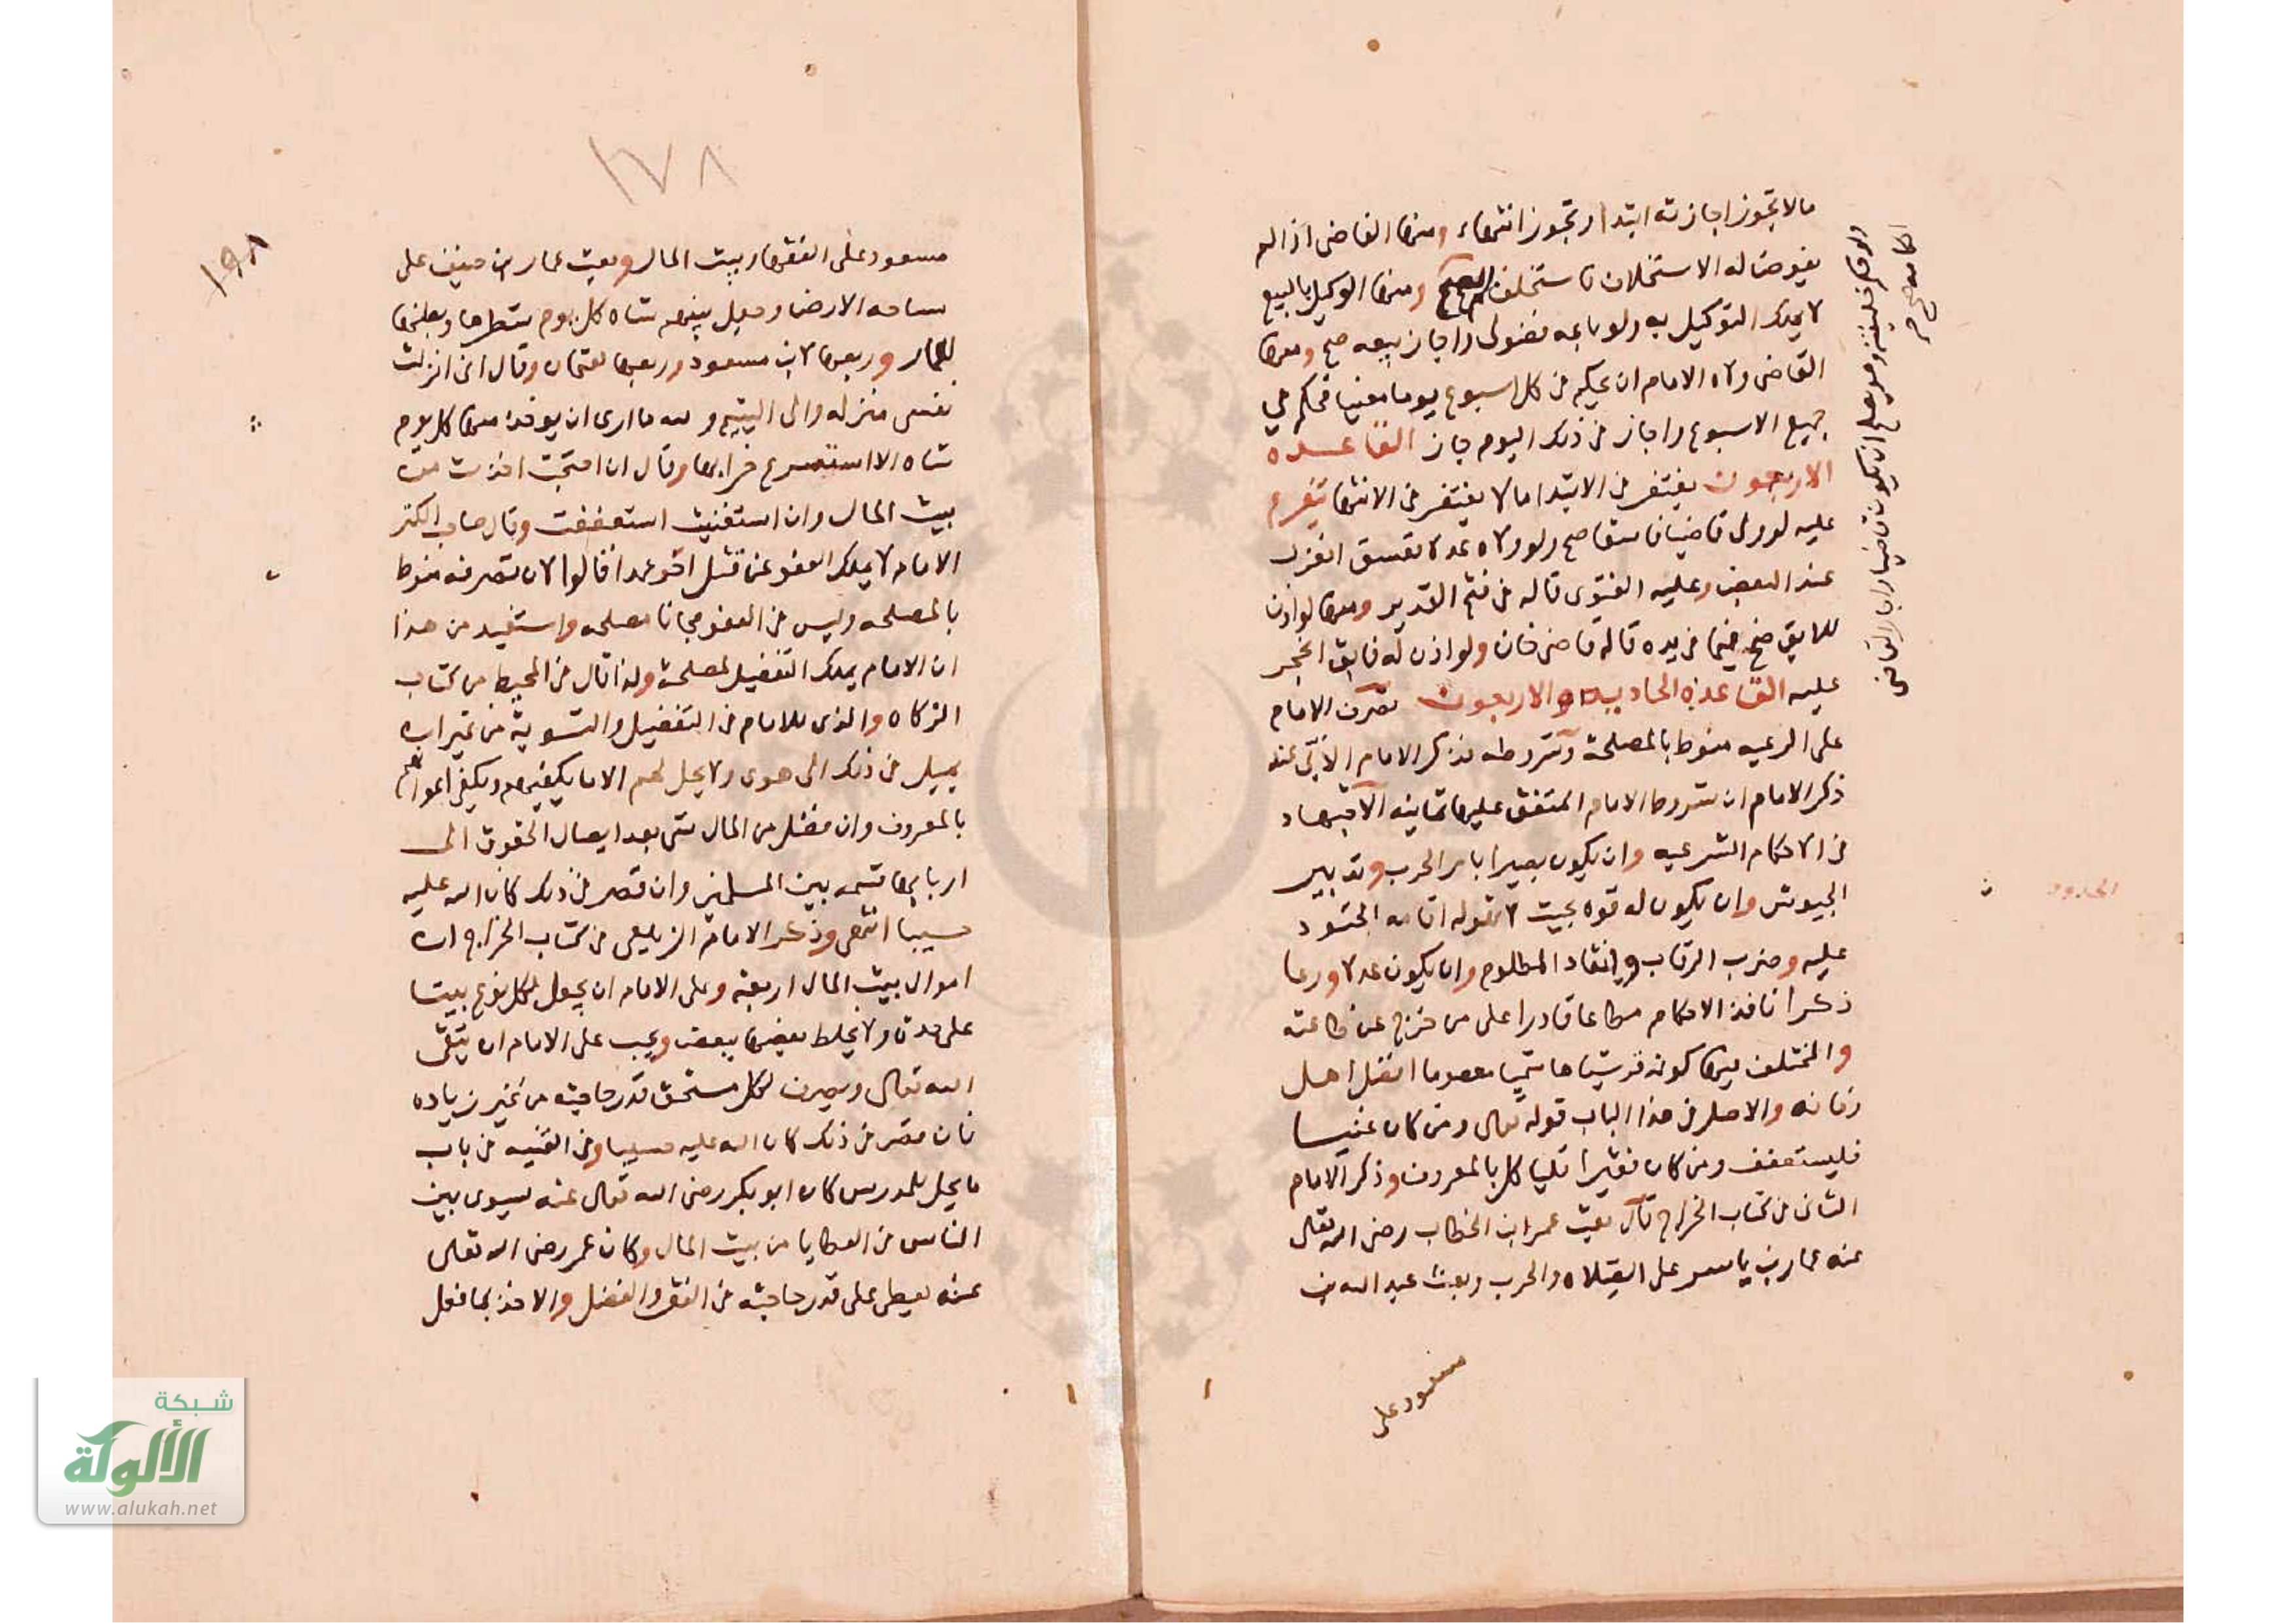 ما لا تجوز اجازته ابتداء وتجوز انتهاء ومنها القاضى اذا لم
يفوض له الاستخلاف فاستخلف لم يصح ومنها الوكيل بالبيع
لا يملك التوكيل به ولو باعه فضولى واجاز بيعه صح ومنها
القاضى ولاه الامام ان يحكم فى كل اسبوع يوما معينا فحكم فى
جميع الاسبوع واجاز فى ذلك اليوم جاز القاعده
الاربعون يغتفر فى الابتدا ما لا يغتفر فى الانتها يتفرع
عليه لو ولى قاضيا فاسقا صح ولو ولاه عدلا ففسق انعزل
عند البعض وعليه الفتوى قاله فى فتح القدير ومنها لو اذن
للابق صح فيما فى يده قاله قاضى خان ولو اذن له فابق انحجر
عليه القاعدة الحاديه والاربعون تصرف الامام
على الرعيه منوط بالمصلحة وشروطه نذكر الامام
ذكر الامام ان شروط الامام المتفق عليها ثمانيه الاجتهاد
فى الاحكام الشرعيه وان يكون بصيرا بامر الحرب وتدبير
الجيوش وان يكون له قوه بحيث لا تهوله اقامه الحدود
عليه وضرب الرقاب وانقاد المظلوم وان يكون عدلا ورعا
ذكرا نافذ الاحكام مطاعا قادرا على من خرج عن طاعته
والمختلف فيها كونه قرشيا هاشميا معصوما افضل اهل
زمانه والاصل فى هذا الباب قوله تعالى ومن كان غنيا
فليستعفف ومن كان فقيرا فليا كل بالمعروف وذكر الامام
الثانى فى كتاب الخراج قال بعث عمر ابن الخطاب رضى الله تعالى
عنه عمار بن ياسر على الصلاه والحرب وبعث عبد الله بن
مسعود على
ولو حكم خليفته وهو يصلح ان يكون قاضيا واجاز القاضى
احكامه صح
١٧٨
١٩٨
مسعود على القضا وبيت المال وبعث عمار بن حنيف على
مساحه الارض وجعل بينهم شاه كل يوم شطرها وبطنها
لعمار وربعها لابن مسعود وربعها لعثمان وقال انى انزلت
نفسى منزله والى اليتيم والله ما ارى ان يوخذ منها كل يوم
شاه الا استسرع خرابها وقال ان احتجت اخذت من
بيت المال وان استغنيت استعففت وقال صاحب الكنز
الامام لا يملك العفو عن قتل اخو عمدا قالوا لان تصرفه منوط
بالمصلحه وليس فى العفو مجانا مصلحه واستفيد من هذا
ان الامام يملك التفضيل لمصلحة ولذا قال فى المحيط من كتاب
الزكاه والذى للامام فى التفضيل والتسوية من غير ان
يميل فى ذلك الى هوى ولا يحل لهم الا ما يكفيهم ويكفى اعوانهم
بالمعروف وان فضل من المال شى بعد ايصال الحقوق الى
اربابها قسمه بين المسلمين وان قصر فى ذلك كان الله عليه
حسيبا انتهى وذكر الامام الزيلعى فى كتاب الخراج ان
اموال بيت المال اربعة وعلى الامام ان يجعل لكل نوع بيتا
على حدة ولا يخلط بعضها ببعض ويجب على الامام ان يتقى
الله تعالى ويصرف لكل مستحق قدر حاجته من غير زياده
فان قصر فى ذلك كان الله عليه حسيبا وفى القنيه فى باب
ما يحل للمدرس كان ابو بكر رضى الله تعالى عنه يسوى بين
الناس فى العطايا من بيت المال وكان عمر رضى الله تعالى
عنه يعطى على قدر حاجته فى الفقه والفضل والاخذ بما فعل
شبكة
الألوكة
www.alukah.net